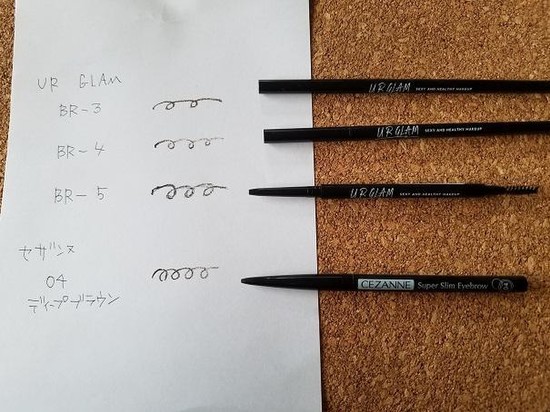 UR GLAM
BR-3
BR-4
BR-5
セザンヌ
04
ディープブラウン
URGLAM SEXY AND HEALTHY MAKEUP
URGLAM SEXY AND HEALTHY MAKEUP
URGLAM SEXY AND HEALTHY MAKEUP
CEZANNE Super Slim Eyebrow